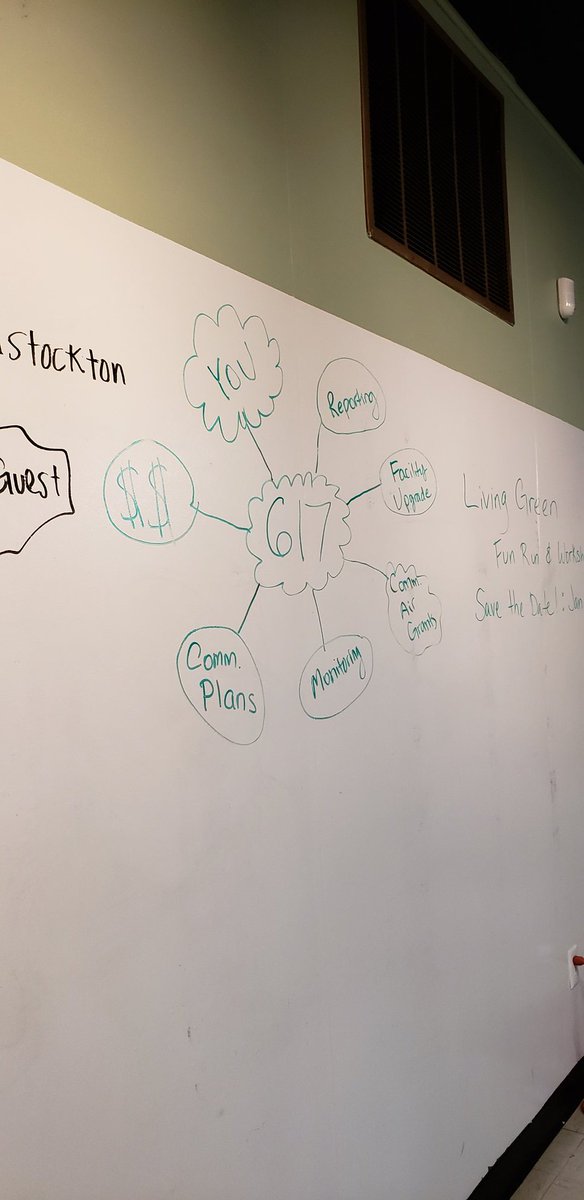 stockton
Guest
YOU
Reporting
$$
617
Facility
Upgrade
Comm.
Air
Grants
Comm.
Plans
Monitoring
Living Green
Fun Run & Worksh
Save the Date!: Jan